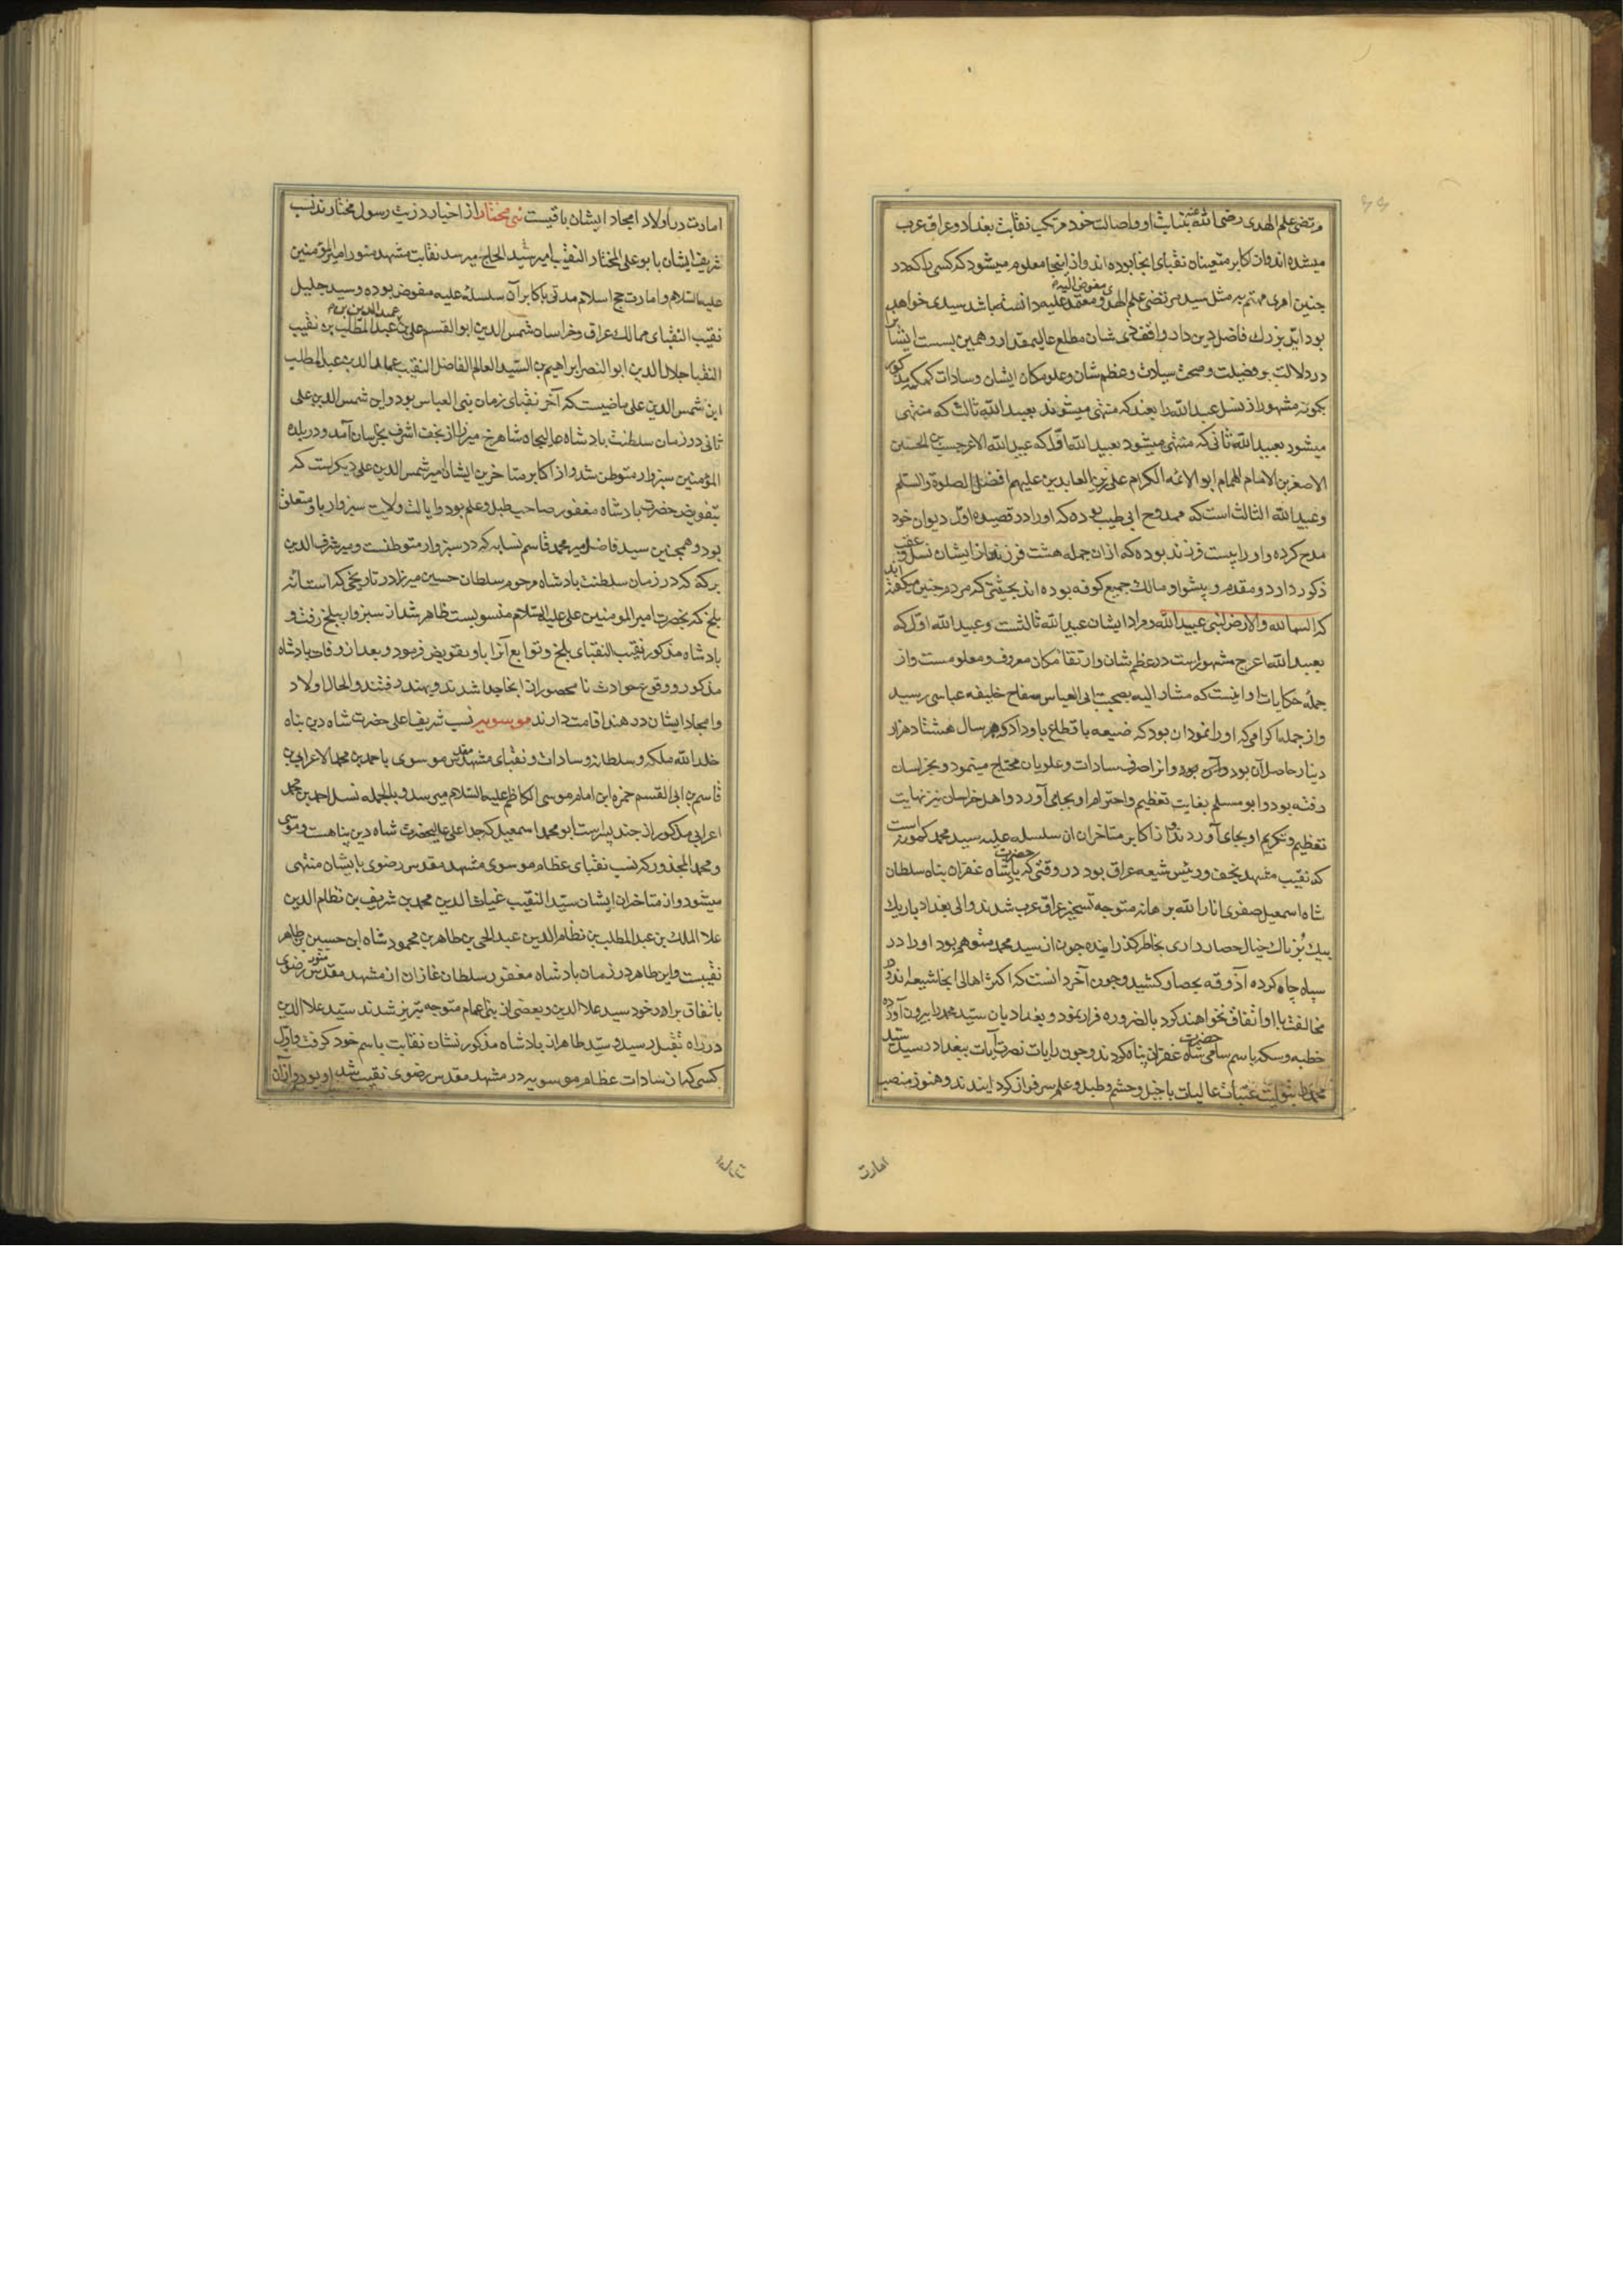 مرتضی علم الهدی رضی الله عنه بنیابت او و اصالت خود مرتکب نقابت بغداد و عراق عرب
میشده اند و از اکابر متعینان نقبای انجا بوده اند و از اینجا معلوم میشود که کسی را که در
چنین امری مهتم به مثل سید مرتضی علم الهدی مفوض الیه و معتمد علیه دانسته باشد سیدی خواهد
بود ایل بزرک فاضل دین دار واقفی شان مطلع عالیمقدار و همین بست ایشانرا
در دلالت بر فضیلت و صحت سیادت و عظم شان و علو مکان ایشان و سادات کمکمه مذکور
بکونه مشهور از نسل عبید الله را بعند که منتهی میشوند بعبید الله ثالث که منتهی
میشود بعبید الله ثانی که منتهی میشود بعبید الله اول که عبید الله الاعرجست بن الحسین
الاصغر بن الامام الهمام ابو الائمه الکرام علی زین العابدین علیهم افضل الصلوة والسلم
و عبید الله الثالث است که ممدوح ابی طیب بوده که او را در قصیده اول دیوان خود
مدح کرده و او را بیست فرزند بوده که از ان جمله هشت فرزند از ایشان نسل و عقب
ذکور دارد و مقدم و پیشوا و مالک جمیع کوفه بوده اند بحیثیتی که مردم چنین میکفته اند
که السما لله والارض لبنی عبید الله و مراد ایشان عبید الله ثالثست و عبید الله اول که
بعبید الله اعرج مشهور است در عظم شان و ارتقا مکان معروف و معلومست و از
جمله حکایات او اینست که مشار الیه بصحبت ابی العباس سفاح خلیفه عباسی رسید
و از جمله اکرامی که او را نمود ان بود که ضیعه باقطاع باو داد که هر سال هشتاد هزار
دینار حاصل آن بود و آن را صرف سادات و علویان محتاج مینمود و بخراسان
رفته بود و ابو مسلم بغایت تعظیم و احترام او بجای آورد و اهل خراسان نیز نهایت
تعظیم و تکریم او بجای آوردند و از اکابر متاخران ان سلسله علیه سید محمد کمونه است
که نقیب مشهد نجف و رئیس شیعه عراق بود در وقتی که حضرت پادشاه غفران پناه سلطان
شاه اسمعیل صفوی انار الله برهانه متوجه تسخیر عراق عرب شدند والی بغداد باریک
بیک پرناک خیال حصار داری بخاطر کذرانیده چون از سید محمد متوهم بود او را در
سیاه چاه کرده آذوقه بحصار کشید و چون آخر دانست که اکثر اهالی انجا شیعه اند و در
مخالفت با او اتفاق نخواهند کرد بالضروره فرار نمود و بغدادیان سید محمد را بیرون آورده
خطبه و سکه باسم سامی حضرت شاه غفران پناه کردند و چون رایات نصرت آیات ببغداد رسید سید
محمد را بتولیت عتبات عالیات با خیل و حشم و طبل و علم سرفراز کردانیدند و هنوز منصب
امارت
امارت در اولاد امجاد ایشان باقیست بنی مختار از اخیار ذریت رسول مختارند نسب
شریف ایشان بابو علی المختار النقیب امیر شید الحاج میرسد نقابت مشهد منور امیر المؤمنین
علیه السلام و امارت حج اسلام مدتی باکابر آن سلسله علیه مفوض بوده و سید جلیل
نقیب النقبای ممالک عراق و خراسان شمس الدین ابو القسم علی بن عمید الدین بن عبد المطلب بن نقیب
النقبا جلال الدین ابو النصر ابراهیم بن السید العالم الفاضل النقیب عماد الدین عبد المطلب
ابن شمس الدین علی ماضیست که آخر نقبای زمان بنی العباس بود و این شمس الدین علی
ثانی در زمان سلطنت بادشاه عالیجاه شاهرخ میرزا از نجف اشرف بخراسان آمد و در بلده
المؤمنین سبزوار متوطن شد و از اکابر متاخرین ایشان میر شمس الدین علی دیکر است که
بتفویض حضرت بادشاه مغفور صاحب طبل و علم بود و ایالت ولایت سبزوار باو متعلق
بود و همچنین سید فاضل میر محمد قاسم نسابه که در سبزوار متوطنست و میر شرف الدین
برکه که در زمان سلطنت بادشاه مرحوم سلطان حسین میرزا در تاریخی که استانه
بلخ که بحضرت امیر المومنین علی علیه السلام منسوبست ظاهر شد از سبزوار ببلخ رفت و
بادشاه مذکور نقیب النقبای بلخ و توابع آنرا باو تفویض فرمود و بعد از وفات بادشاه
مذکور و وقوع حوادث نامحصور از انجا جدا شدند و بهند رفتند و الحال اولاد
و امجاد ایشان در هند اقامت دارند موسویه نسب شریف اعلی حضرت شاه دین پناه
خلد الله ملکه و سلطانه و سادات و نقبای مشهد مقدس موسوی باحمد بن محمد الاعرابی بن
قاسم بن ابی القسم حمزه ابن امام موسی الکاظم علیه السلام میرسد و بالجمله نسل احمد بن محمد
اعرابی مذکور از چند پسر است ابو محمد اسمعیل که جد اعلی عالیحضرت شاه دین پناهست و موسی
و محمد المجذور که نسب نقبای عظام موسوی مشهد مقدس رضوی بایشان منتهی
میشود و از متاخران ایشان سید النقیب غیاث الدین محمد بن شریف بن نظام الدین
علا الملک بن عبد المطلب بن نظام الدین عبد الحی بن طاهر بن محمود شاه ابن حسین بن طاهر
نقیبست و این طاهر در زمان بادشاه مغفور سلطان غازان از مشهد مقدس منور رضوی
باتفاق برادر خود سید علا الدین و بعضی از بنی اعمام متوجه تبریز شدند سید علا الدین
در راه بقتل رسید و سید طاهر از بادشاه مذکور نشان نقابت باسم خود کرفت و اول
کسی که از سادات عظام موسویه در مشهد مقدس رضوی نقیب شد او بود و از آن